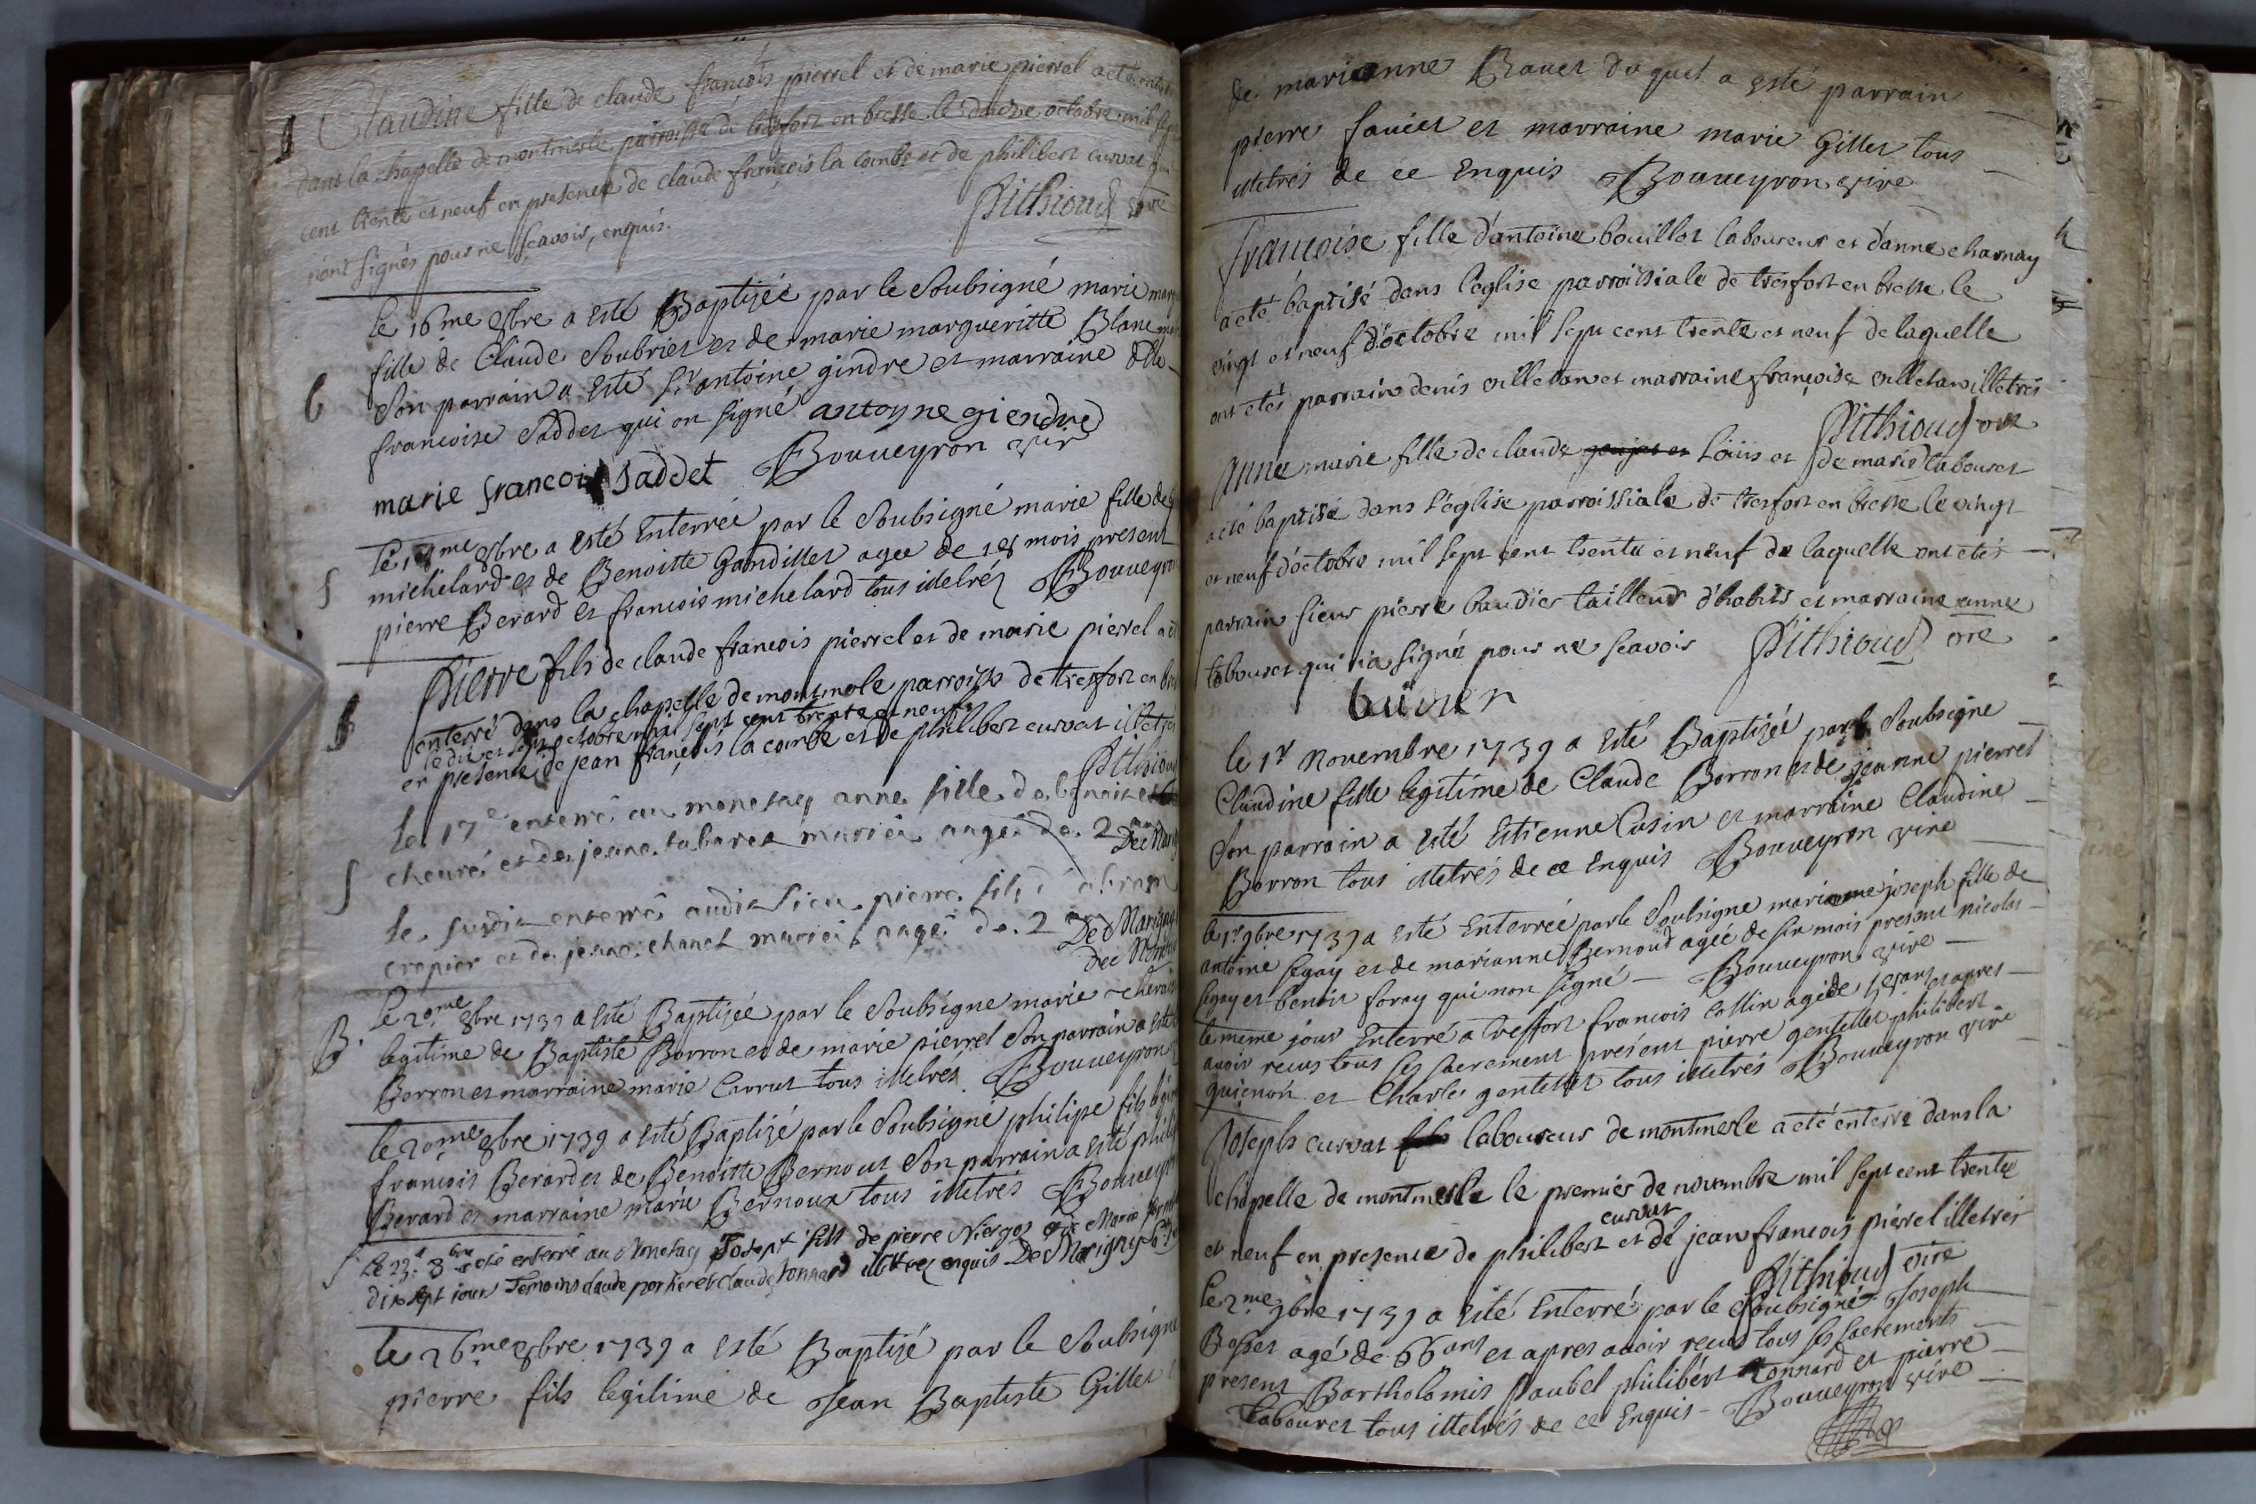 Claudine fille de claude françois pierrel et de marie pierrel a eté
dans la chapelle de montmerle parroisse de trefort en bresse le octobre mil
cent trente et neuf en presence de claude françois la combe et de philibert curvat
n'ont signés pour ne sçavoir, enquis. Pithioud vire
le 16me 8bre a esté Baptizée par le Soubsigné marie
fille de Claude Soubrier et de marie margueritte Blanc
6 Son parrain a esté sr antoine gindre et marraine dlle
francoise Saddet qui on signé antoyne giendre
marie francois saddet Bouueyron vire
le 18me 8bre a esté Enterrée par le Soubsigné marie fille de
S michelard et de Benoitte Gandillet agee de 18 mois present
pierre Berard et francois michelard tous illetrés Bouueyron
Pierre fils de claude francois pierrel et de marie pierrel a
enterré dans la chapelle de montmerle parroisse de trefort en
le dix et sept octobre mil sept cent trente et neuf
en presence de jean françois la combe et de philibert curvat illetrés
Pithioud
le 17e enterré au monetay anne fille de benoit
S cheuré et de jeane tabaret mariéi aagé de 2
le susdit enterré audit lieu pierre fils d' abram
crepier et de jeane chanel mariéi aagé de 2
De Marigny
B. le 20me 8bre 1739 a esté Baptizée par le Soubsigné marie
legitime de Baptiste Borron et de marie pierrel Son parrain a esté
Borron et marraine marie Curvat tous illetrés Bouueyron
le 20me 8bre 1739 a esté Baptizé par le Soubsigné philipe fils
francois Berard et de Benoitte Bernout Son parrain a esté
Berard et marraine marie Bernoux tous illetrés Bouueyron
S Le 23e 8bre esté enterré au Monetay Joseph fils de pierre et de Marie
dix sept jour Temoins claude perrier et claude Tonnard illetrez enquis De Marigny
le 26me 8bre 1739 a esté Baptizé par le Soubsigné
pierre fils legitime de Jean Baptiste Gillet
de marieanne Bauet duquel a esté parrain
pierre fauier et marraine marie Gillet tous
illetrés de ce Enquis Bouueyron vire
francoise fille d'antoine bouillot laboureur et d'anne charnay
a eté baptisé dans l'eglise parroissiale de trefort en bresse le
vingt et neuf d'octobre mil sept cent trente et neuf de laquelle
ont etés parrain denis villetan et marraine françoise villetan illetrés
Pithioud vire
anne marie fille de claude loüis et de marie tabouret
a eté baptisé dans l'eglise parroissiale de trefort en bresse le vingt
et neuf d'octobre mil sept cent trente et neuf de laquelle ont etés
parrain sieur pierre baudier tailleur d'habits et marraine anne
tabouret qui n'a signé pour ne scavoir Pithioud vire
le 1r Novembre 1739 a esté Baptizée par le Soubsigne
Claudine fille legitime de Claude Borron et de jeanne pierrel
Son parrain a esté Estienne Cusin et marraine Claudine
Borron tous illetrés de ce Enquis Bouueyron vire
le 1r 9bre 1739 a esté Enterrée par le Soubsigne marianne joseph fille de
antoine segay et de marianne Bernoud agée de six mois present nicolas
segay et benoit foray qui non signé Bouueyron vire
le meme jour Enterré a treffort francois Collin agé de ans et apres
auoir recus tous les sacrement present pierre gentillet philibert
guienon et Charles gentillet tous illetrés Bouueyron vire
Joseph curvat laboureur de montmerle a eté enterré dans la
chapelle de montmerle le premier de novembre mil sept cent trente
curvat
et neuf en presence de philibert et de jean francois pierrel illetrés
Pithioud vire
le 2me 9bre 1739 a esté Enterré par le Soubsigné Joseph
agé de 66 ans et apres auoir recus tous les sacrements
present Bartholomis Paubel philibert Tonnard et pierre
Tabouret tous illetrés de ce Enquis - Bouueyron vire